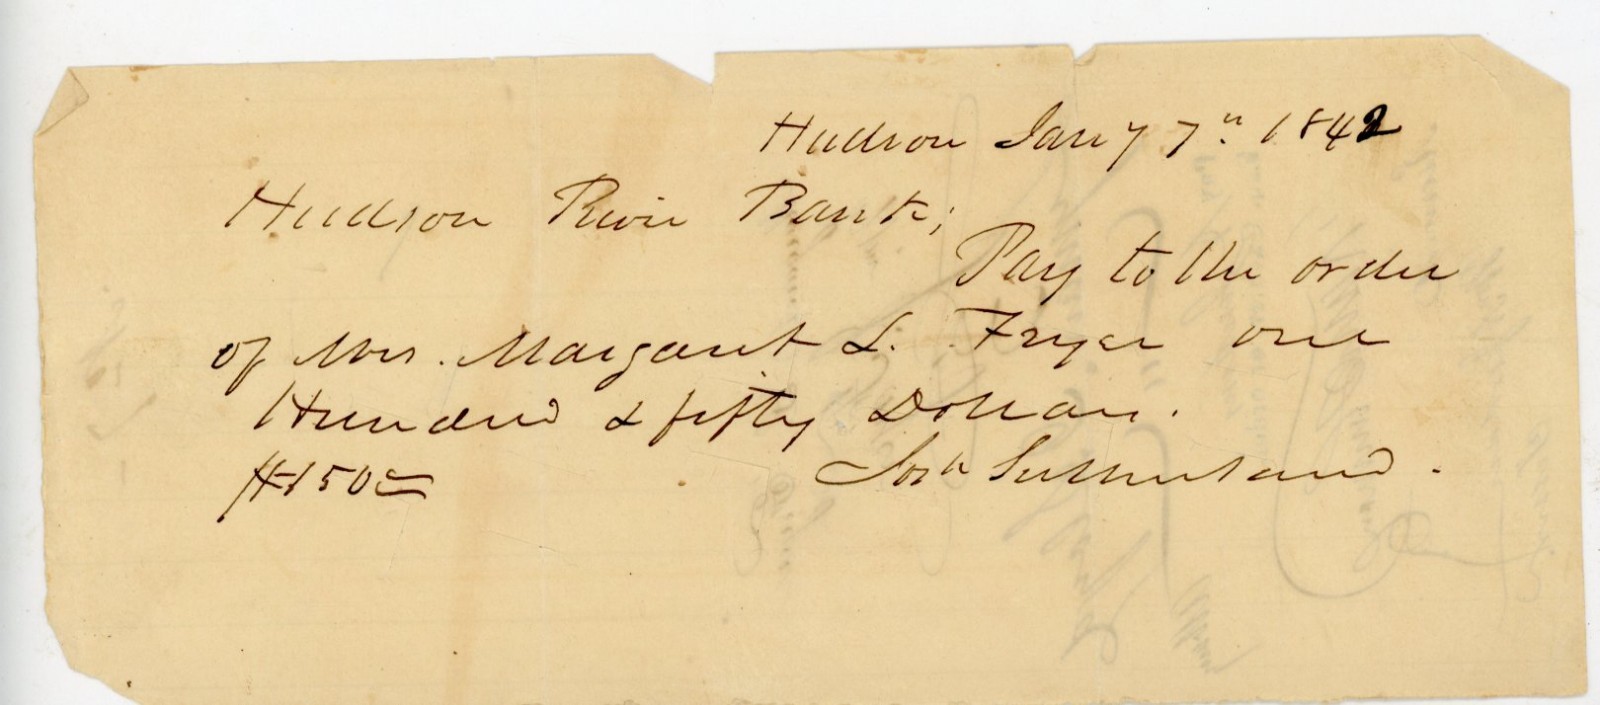 Hudson Jany 7th 1842
Hudson River Bank;
Pay to the order
of Mrs. Margaret L. Fryer one
Hundred & fifty Dollars.
$150 Josh Sutherland.